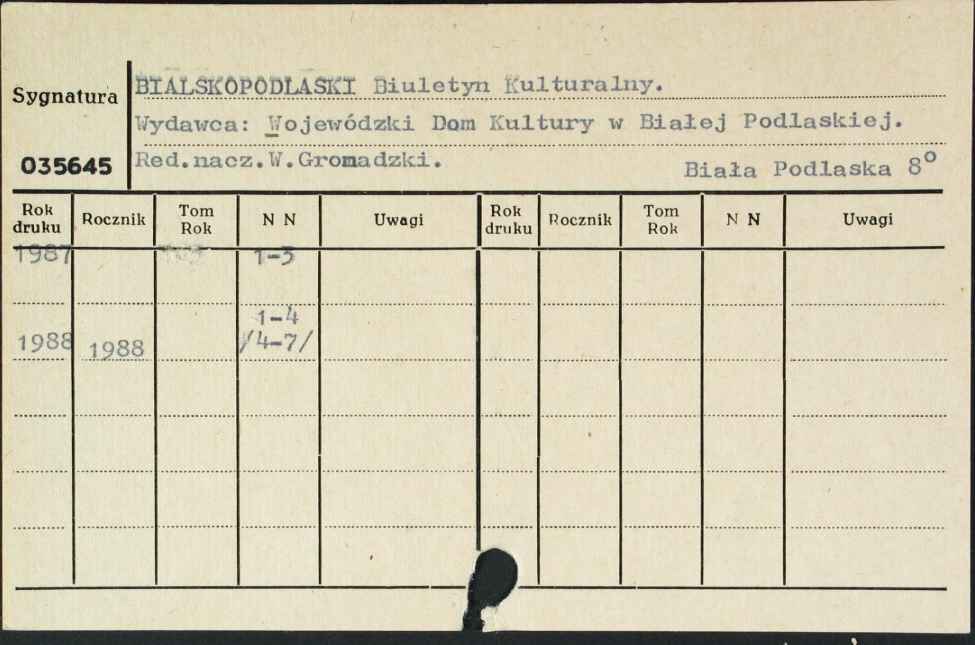 Sygnatura
035645
BIALSKOPODLASKI Biuletyn Kulturalny.
Wydawca: Wojewódzki Dom Kultury w Białej Podlaskiej.
Red.nacz.W.Gromadzki.
Biała Podlaska 8°
Rok druku Rocznik Tom Rok N N Uwagi Rok druku Rocznik Tom Rok N N Uwagi
1987 1-3
1-4
1988 1988 /4-7/